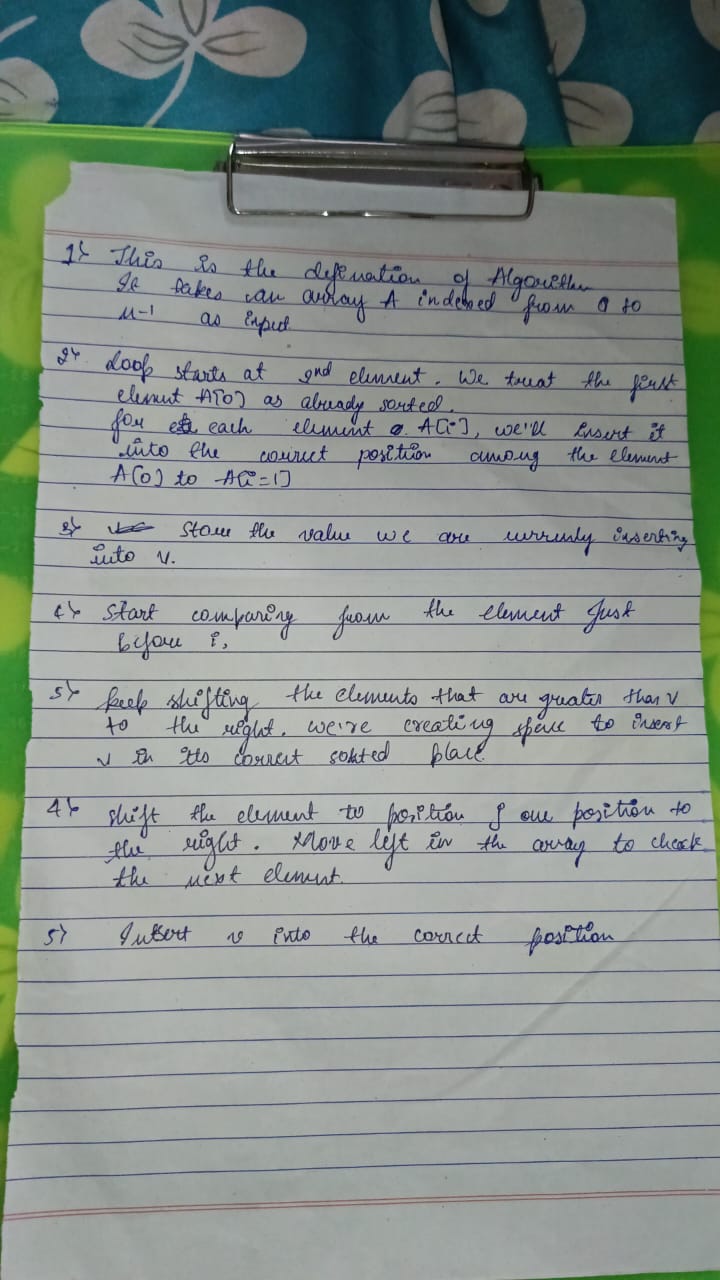 1) This is the defination of Algorithm
It takes an array A indexed from 0 to
n-1 as input
2) Loop starts at 2nd element. We treat the first
element A[0] as already sorted.
for each element A[i], we'll insert it
into the correct position among the element
A[0] to A[i=1]
3) Store the value we are currenly inserting
into v.
4) Start comparing from the element Just
before i,
5) keep shifting the elements that are greater than v
to the right. we're creating space to insert
v in its correct sorted place
4) shift the element to position j one position to
the right. Move left in the array to check
the next element.
5) Insert v into the correct position